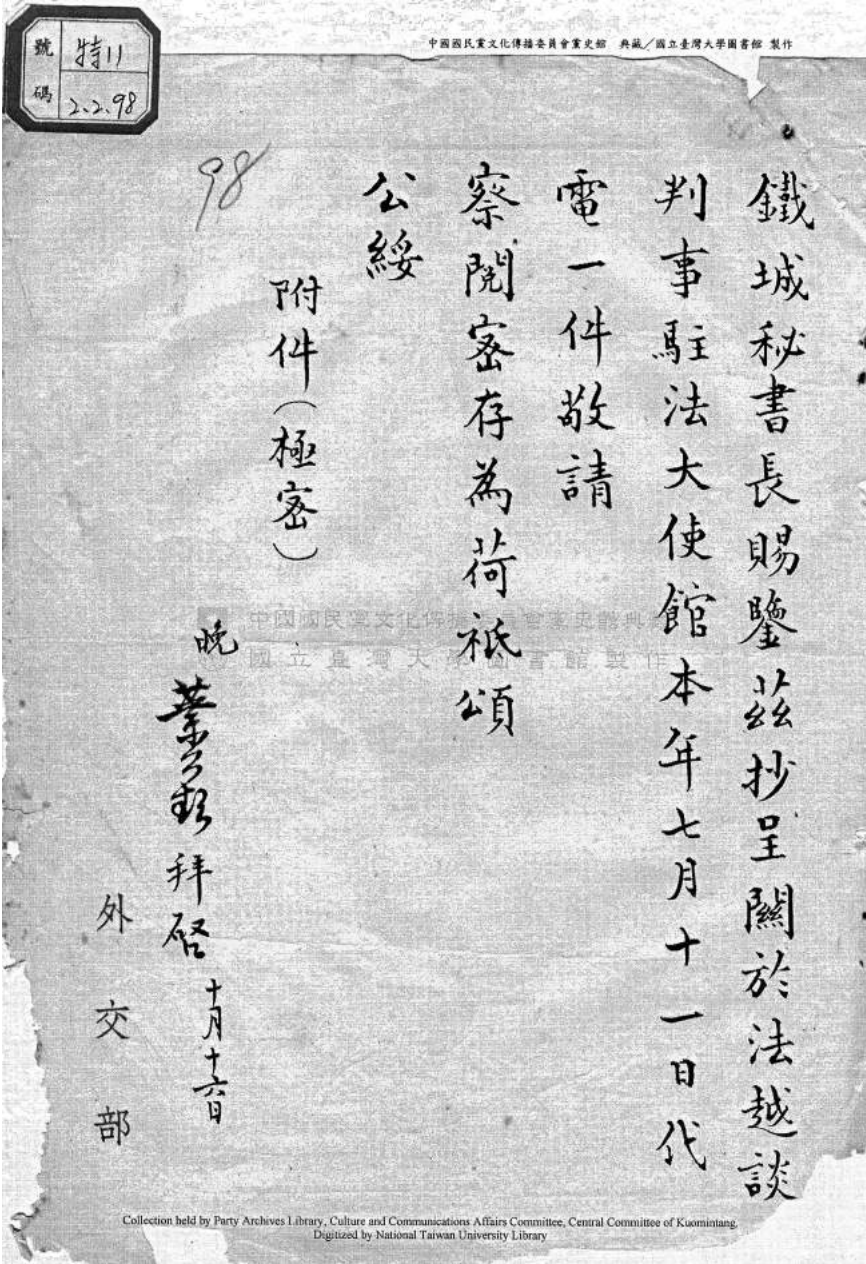 中國國民黨文化傳播委員會黨史館 典藏／國立臺灣大學圖書館 製作
號碼
特11
2.2.98
98
鐵城秘書長賜鑒茲抄呈關於法越談
判事駐法大使館本年七月十一日代
電一件敬請
察閱密存為荷祗頌
公綏
附件(極密)
晚葉公超拜啓 十月十六日
外交部
中國國民黨文化傳播委員會黨史館典藏
國立臺灣大學圖書館製作
Collection held by Party Archives Library, Culture and Communications Affairs Committee, Central Committee of Kuomintang.
Digitized by National Taiwan University Library